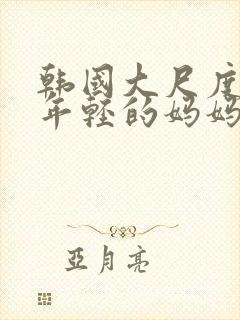 韩国大尺度
年轻的妈妈
亞月亮